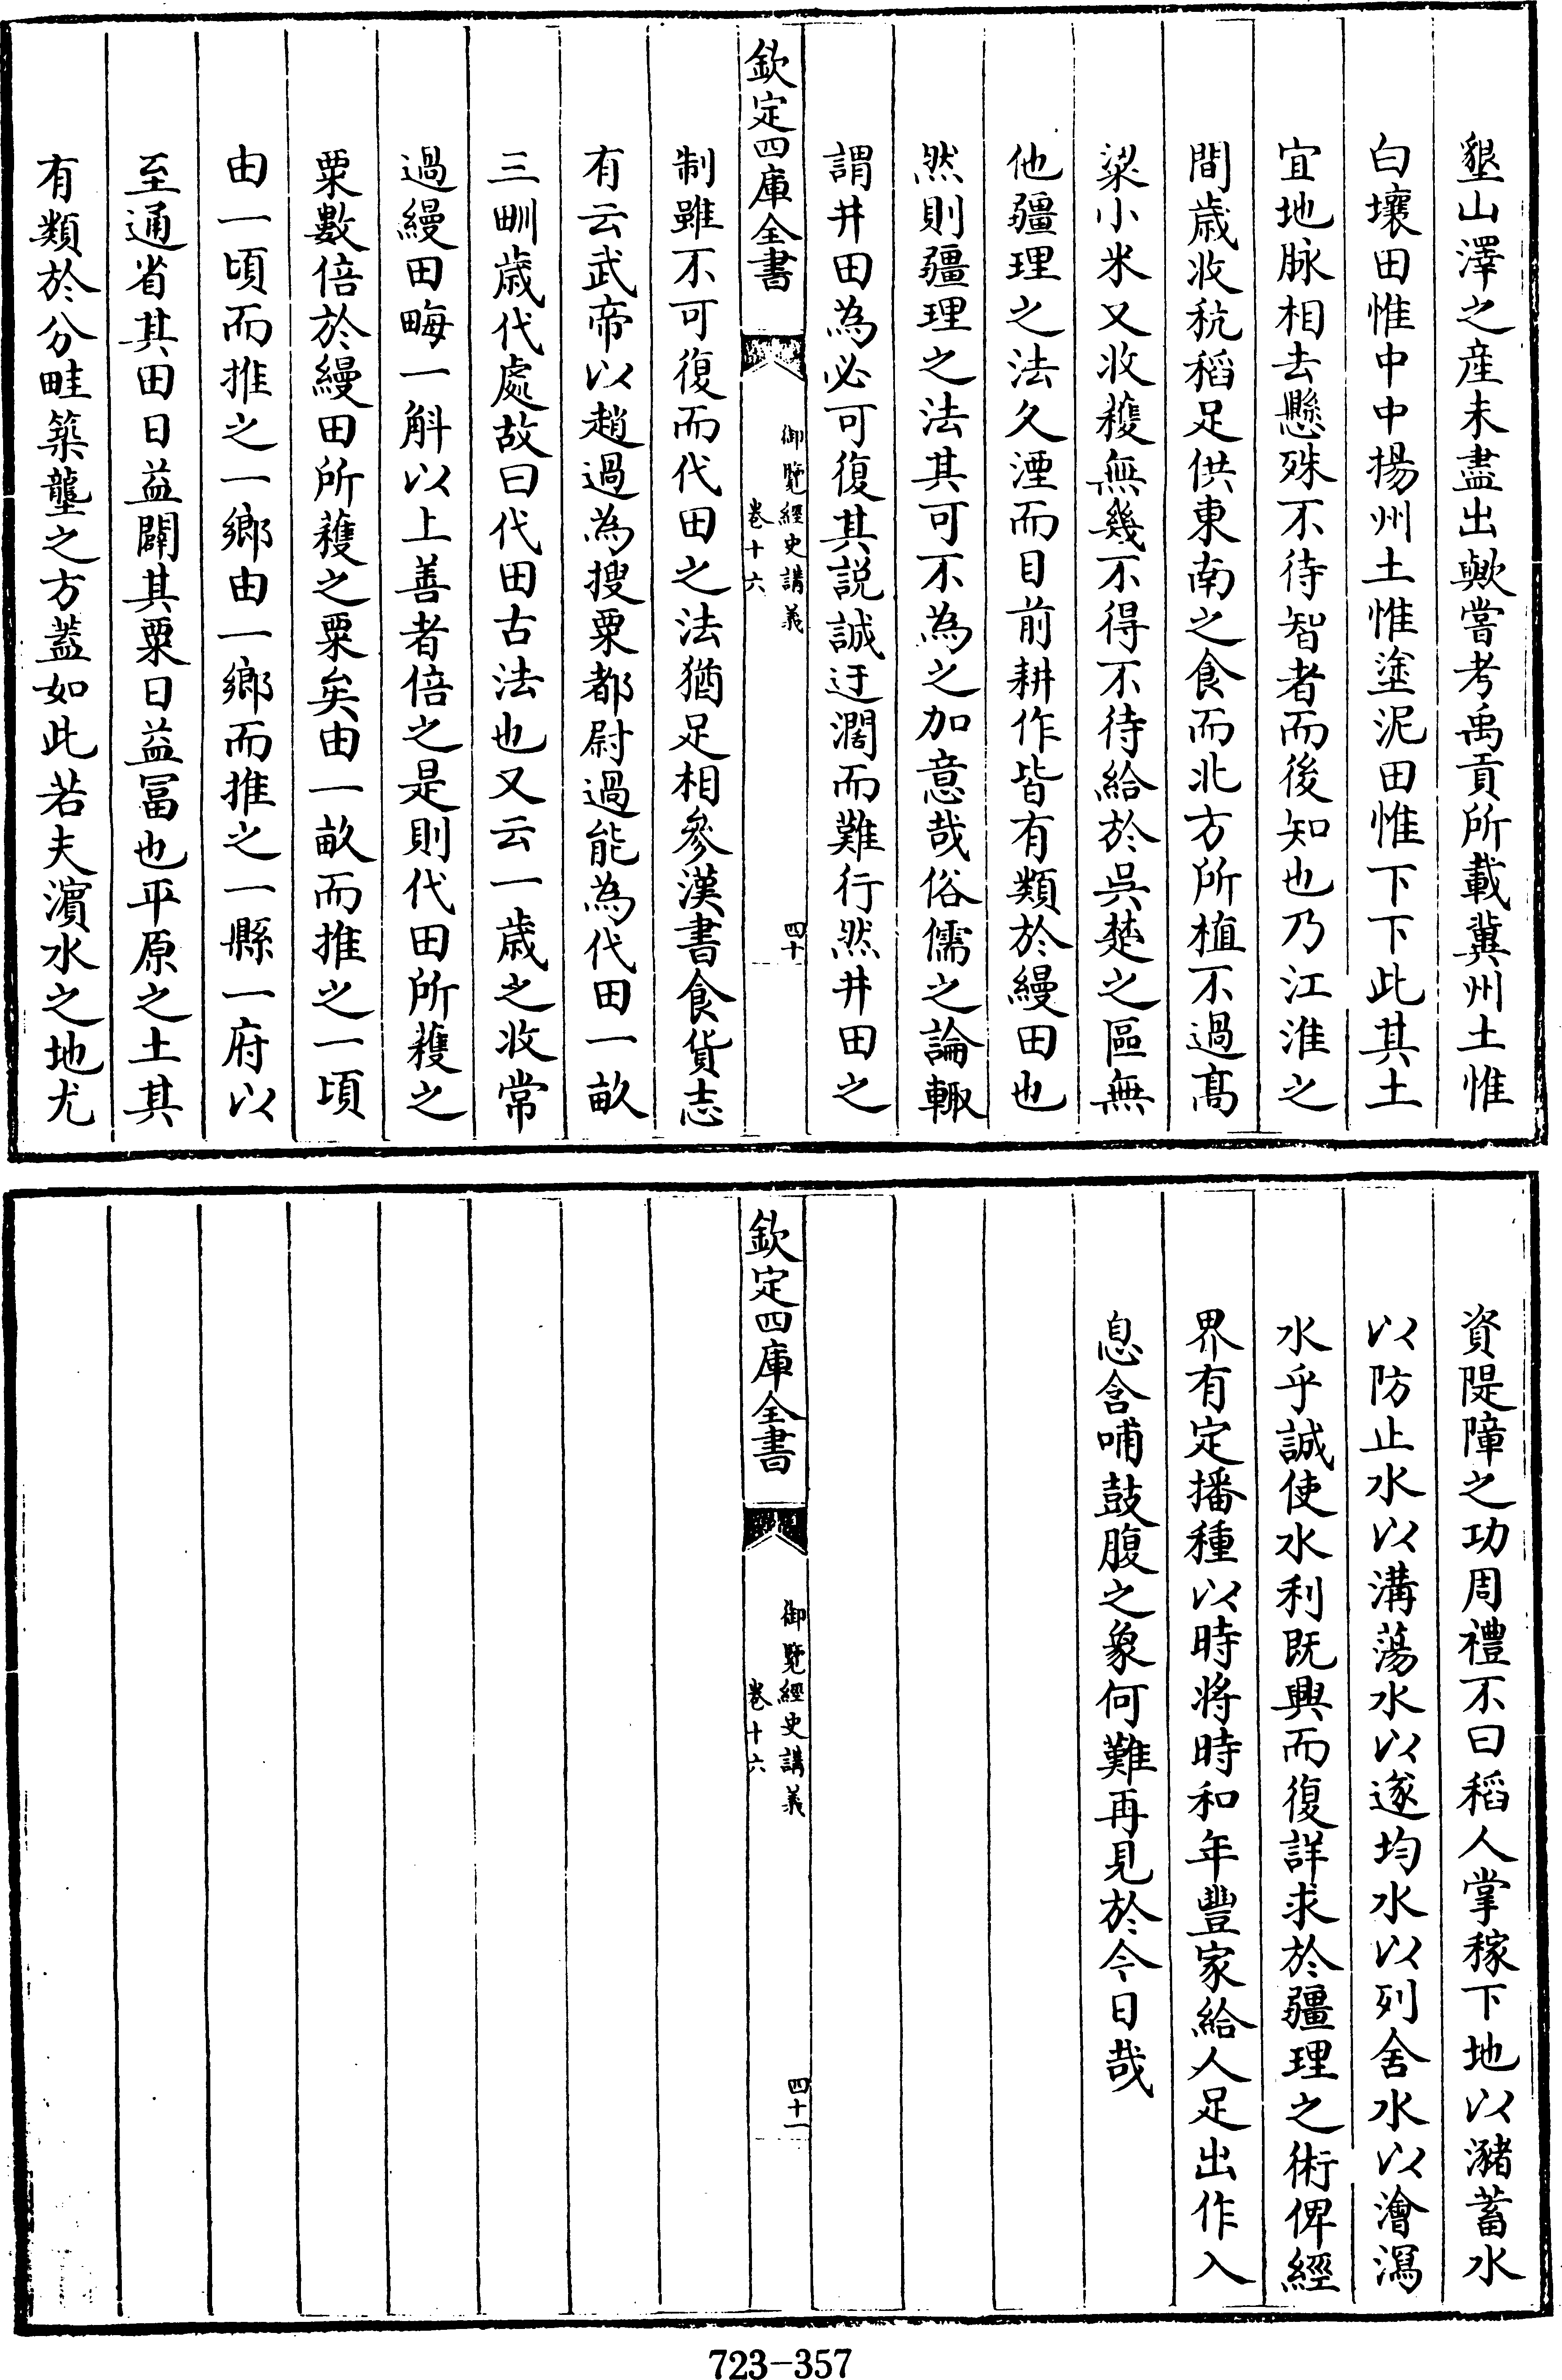 墾山澤之産未盡出歟嘗考禹貢所載冀州土惟
白壤田惟中中揚州土惟塗泥田惟下下此其土
宜地脉相去懸殊不待智者而後知也乃江淮之
間歳收秔稻足供東南之食而北方所植不過髙
粱小米又收穫無幾不得不待給於吳楚之區無
他疆理之法久湮而目前耕作皆有類於縵田也
然則疆理之法其可不為之加意哉俗儒之論輙
謂井田為必可復其説誠迂濶而難行然井田之
欽定四庫全書
御覽經史講義
卷十六
四十
制雖不可復而代田之法猶足相參漢書食貨志
有云武帝以趙過為搜粟都尉過能為代田一畝
三甽歳代處故曰代田古法也又云一歳之收常
過縵田畮一斛以上善者倍之是則代田所穫之
粟數倍於縵田所穫之粟矣由一畝而推之一頃
由一頃而推之一鄉由一鄉而推之一縣一府以
至通省其田日益闢其粟日益冨也平原之土其
有類於分畦築壟之方蓋如此若夫濵水之地尤
資隄障之功周禮不曰稻人掌稼下地以瀦蓄水
以防止水以溝蕩水以遂均水以列舍水以澮瀉
水乎誠使水利既興而復詳求於疆理之術俾經
界有定播種以時将時和年豐家給人足出作入
息含哺鼓腹之象何難再見於今日哉
欽定四庫全書
御覽經史講義
卷十六
四十一
723-357